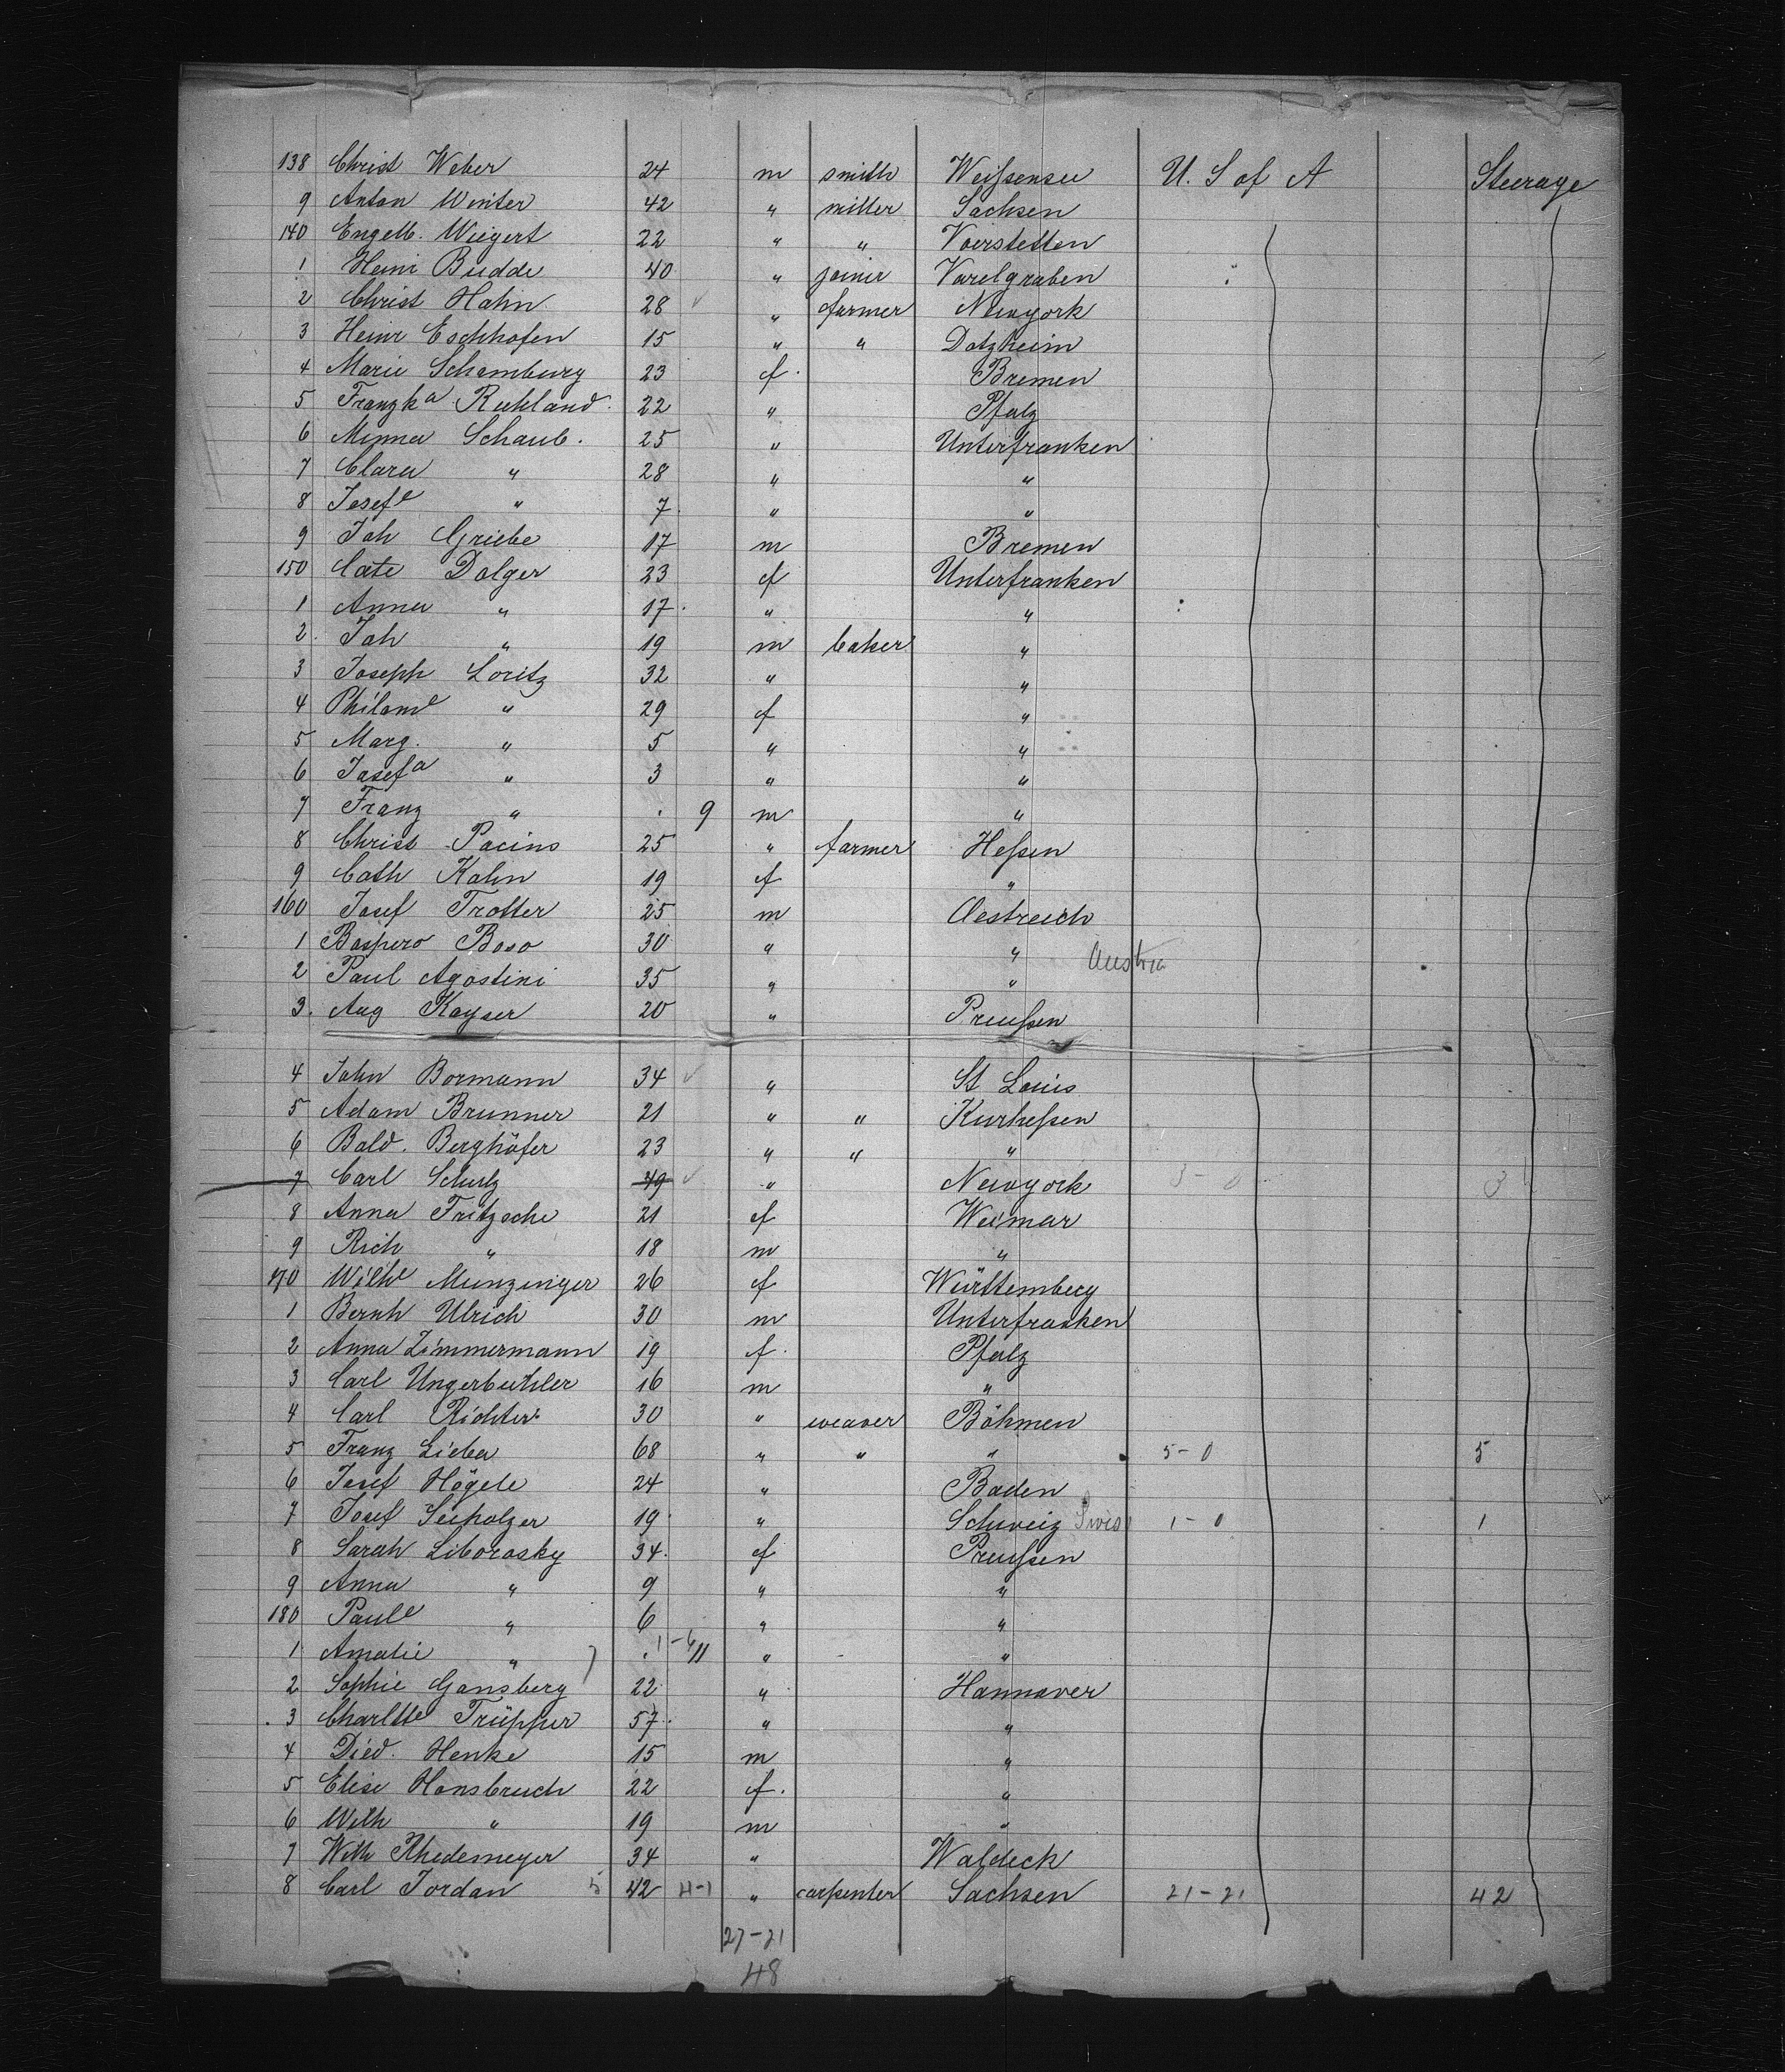 138 Christ Weber 24 m smith Weißensee U. S of A Steerage
9 Anton Winter 42 " miller Sachsen
140 Engelb. Wiegert 22 " " Voerstetten
1 Heinr Budde 40 " joiner Varelgraben "
2 Christ Hahn 28 ✓ " farmer Newyork
3 Heinr Eschhofen 15 " " Dotzheim
4 Marie Schomburg 23 f. Bremen
5 Franzka Ruhland. 22 " Pfalz
6 Minna Schaub. 25 " Unterfranken
7 Clara " 28 " "
8 Josefe " 7. " "
9 Joh Griebe 17 m Bremen
150 Cate Dolger 23 f Unterfranken
1 Anna " 17. " "
2. Joh " 19 m baker "
3 Joseph Loritz 32 " "
4 Philome " 29 f "
5 Marg. " 5 " "
6 Josefa " 3 " "
7 Franz " . 9 m "
8 Christ Pacins 25 " farmer Heßen
9 Cath Kahn 19 f "
160 Josef Trotter 25 m Oestreich
1 Baspero Boso 30 " " Austria
2 Paul Agostini 35 " "
3. Aug Kayser 20 " Preußen
4 John Bormann 34 ✓ " St Louis
5 Adam Brunner 21 " " Kurheßen
6 Bald. Berghöfer 23 " " "
7 Carl Schulz 49 ✓ " Newyork 3-0 3
8 Anna Fritzsche 21 f Weimar
9 Rich " 18 m "
170 Wilhe Munzinger 26 f Württemberg
1 Bernh Ulrich 30 m Unterfranken
2 Anna Zimmermann 19 f. Pfalz
3 Carl Ungerbuhler 16 m "
4 Carl Richter 30 " weaver Böhmen
5 Franz Lieba 68 " " " 5-0 5
6 Josef Högele 24 " Baden
7 Josef Seeholzer 19 " Schweiz Swiss 1-0 1
8 Sarah Liborosky 34. f Preußen
9 Anna " 9 " "
180 Paule " 6 " "
1 Amalie " . 11 " "
2 Sophie Gansberg 22 " Hannover
3 Charltte Trüpper 57. " "
4 Died. Henke 15 m "
5 Elise Hansbruch 22 f. "
6 Wilh " 19 m "
7 Wilh Rhedemeyer 34 " Waldeck
8 Carl Jordan 5 42 4-1 " carpenter Sachsen 21-21 42
27-21
48